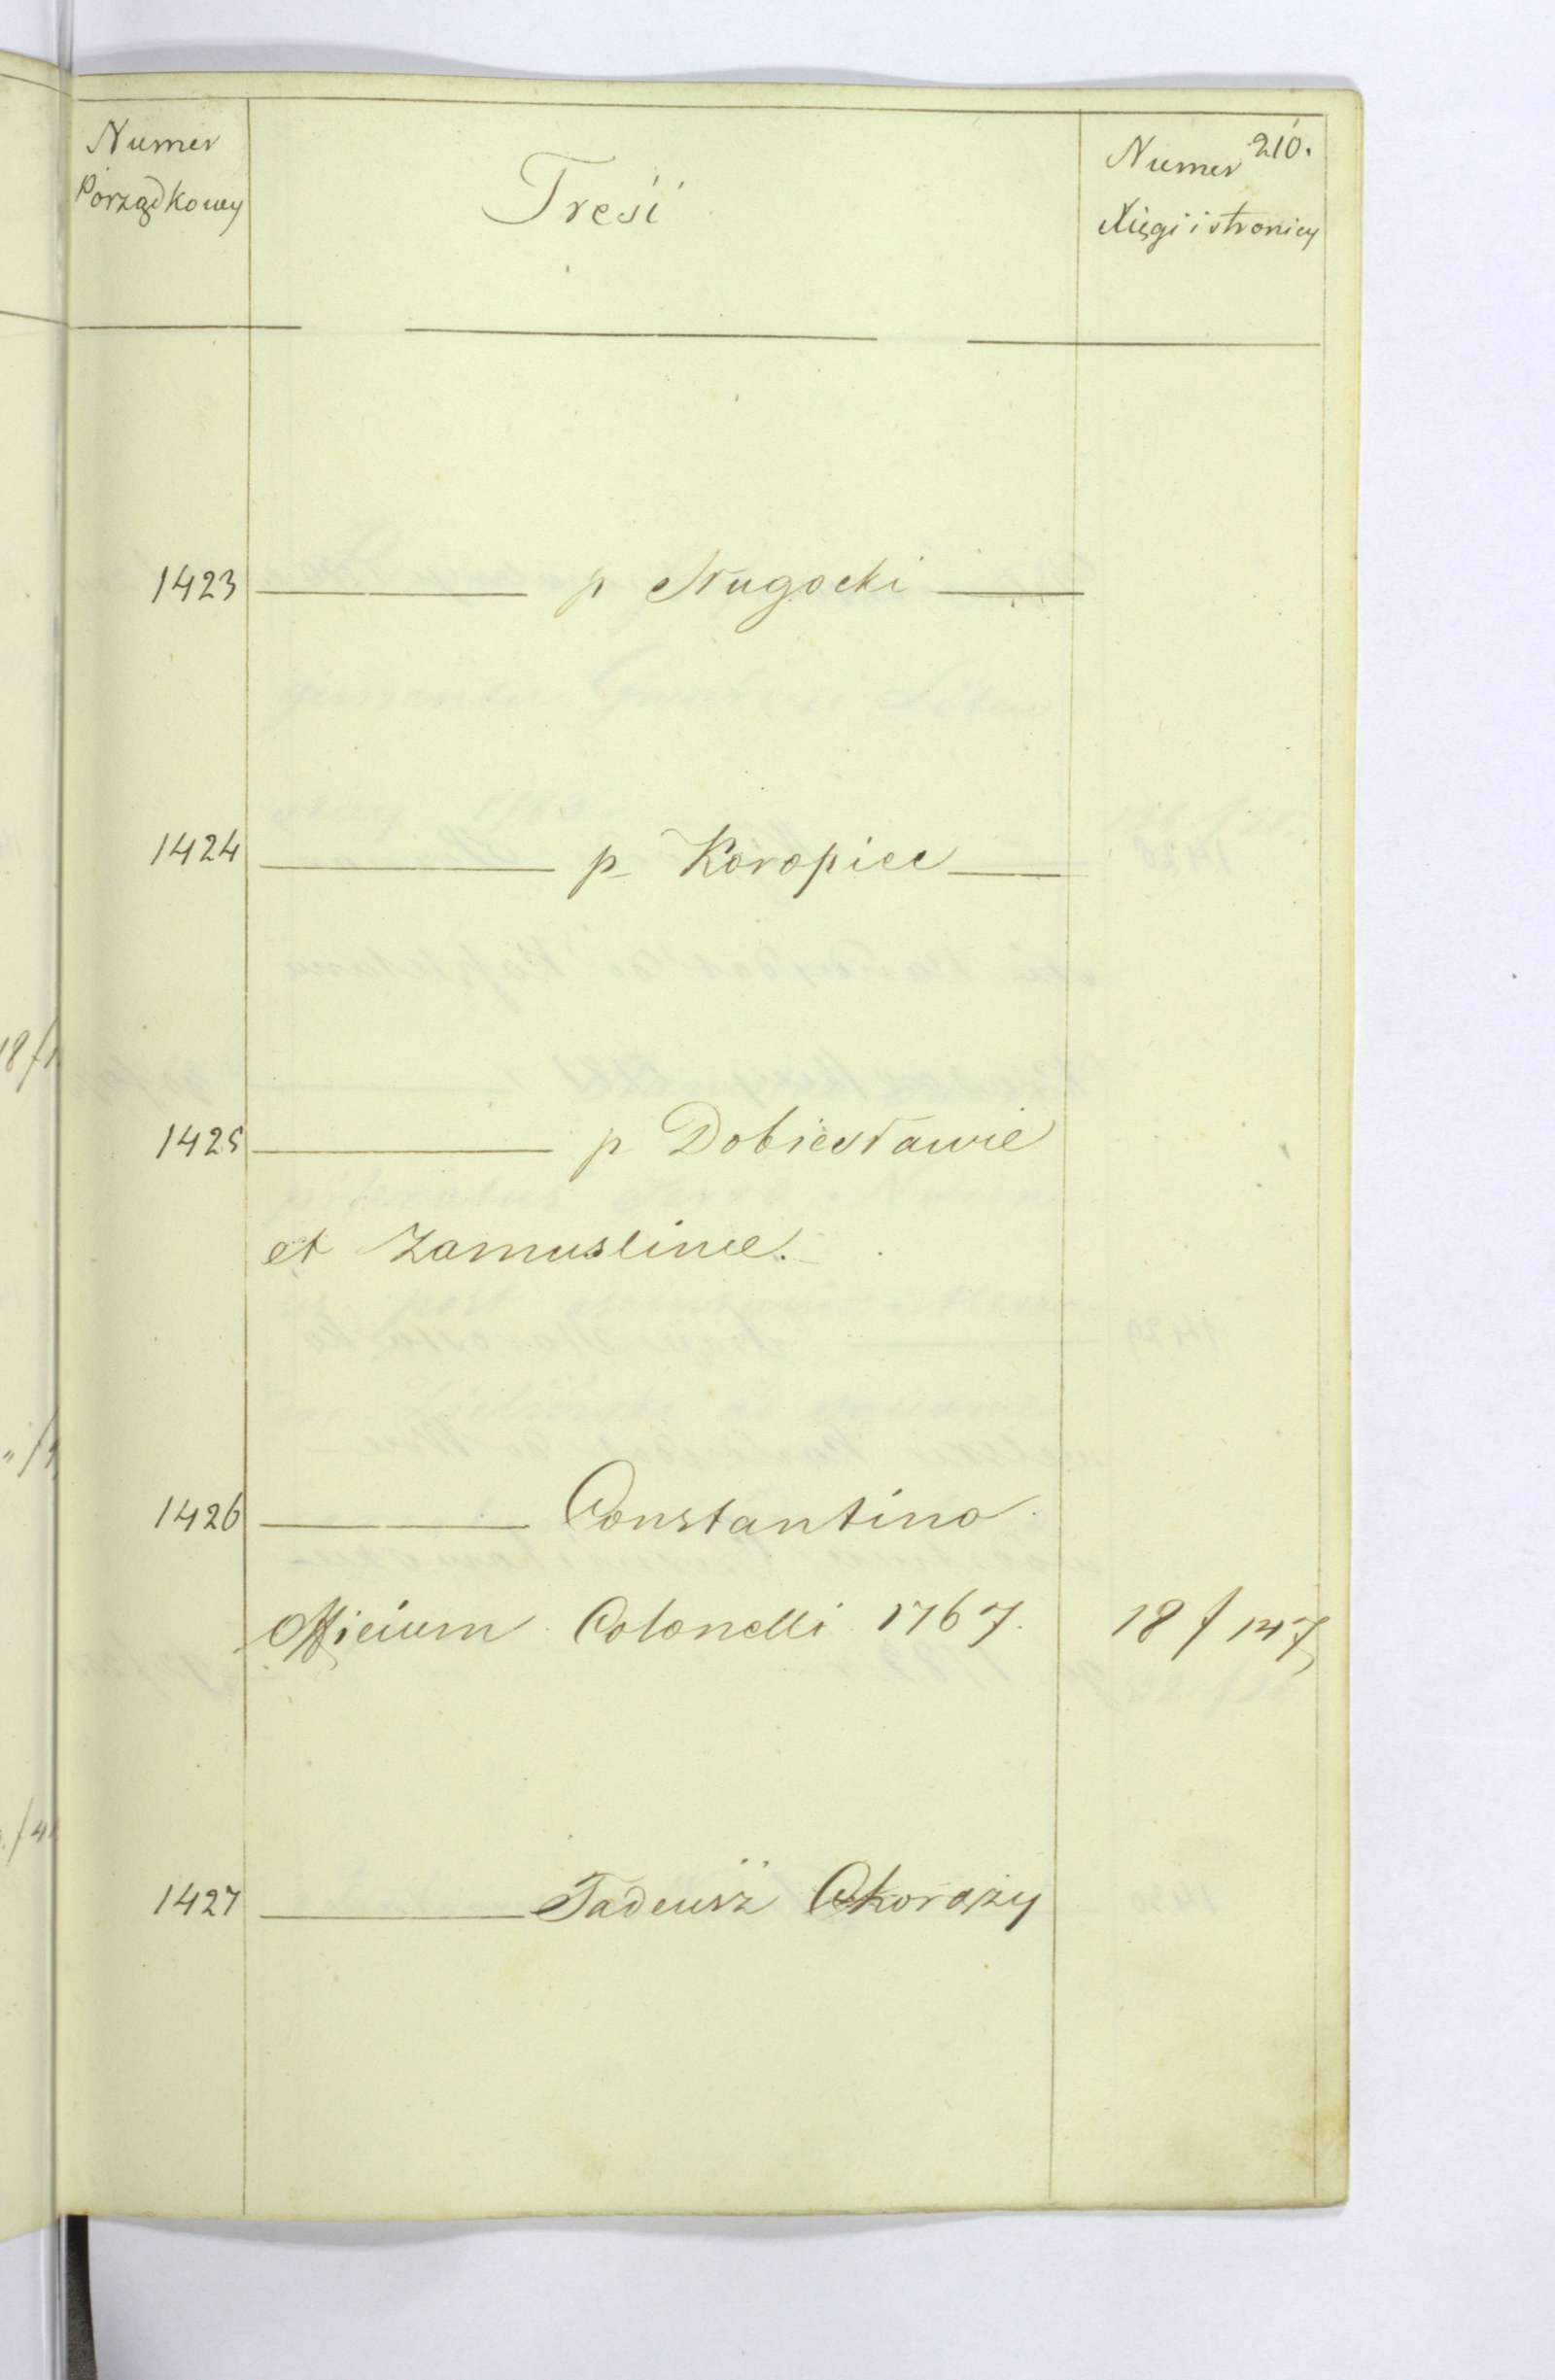 210.
Numer
Porządkowy
Treść
Numer
Xięgi i stronicy
1423 p Ługocki
1424 p Koropiec
1425 p Dobiesławie
et Zamuslince.
1426 Constantino
Officium Colonelli 1767. 18 f 147
1427 Tadeusz Chorąży